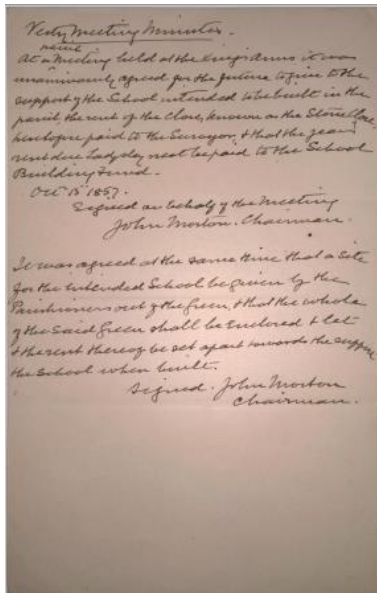 Vestry Meeting Minutes.
parish
At a Meeting held at the King's Arms it was
unanimously agreed for the future to give to the
support of the School intended to be built in the
parish the rent of the Close, known as the Stone Close,
heretofore paid to the Surveyor, & that the year's
rent due Lady day next be paid to the School
Building Fund.
Oct 15 1857.
Signed on behalf of the Meeting
John Morton. Chairman.
It was agreed at the same time that a Site
for the intended School be given by the
Parishioners out of the Green, & that the whole
of the said Green shall be Enclosed & let
& the rent thereof be set apart towards the support
the School when built.
Signed. John Morton
Chairman.